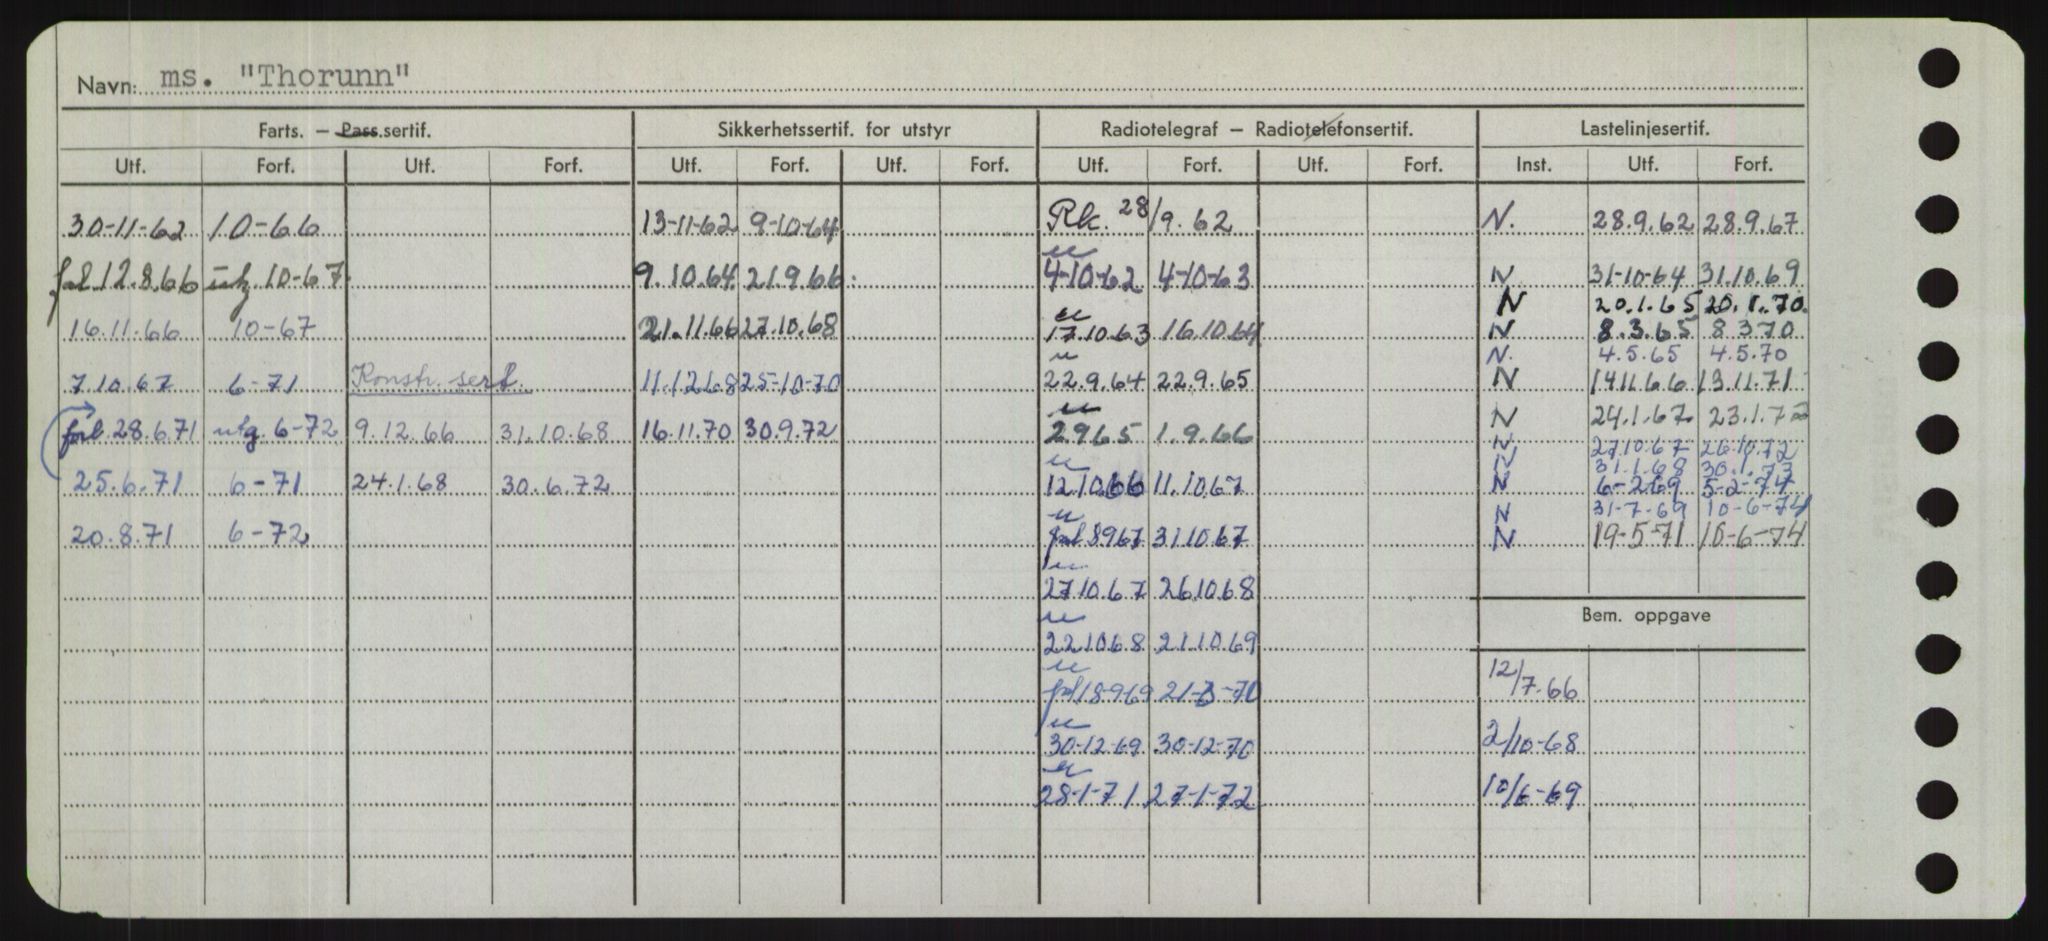 Navn: ms. "Thorunn"
Farts. — Pass.sertif. Sikkerhetssertif. for utstyr Radiotelegraf — Radiotelefonsertif. Lastelinjesertif.
Utf. Forf. Utf. Forf. Utf. Forf. Utf. Forf. Utf. Forf. Utf. Forf. Inst. Utf. Forf.
30-11-62 10-66 13-11-62 9-10-64 Rk. 28/9.62 N. 28.9.62 28.9.67
12.8.66 10-67 9.10.64 21.9.66 4-10-62 4-10-63 N. 31-10-64 31.10.69
N 20.1.65 20.1.70.
16.11.66 10-67 21.11.66 27.10.68 17.10.63 16.10.64 N 8.3.65 8.3.70
N. 4.5.65 4.5.70
7.10.67 6-71 Konstr. sert. 11.12.68 25-10-70 22.9.64 22.9.65 N 14.11.66 13.11.71
forl 28.6.71 utg. 6-72 9.12.66 31.10.68 16.11.70 30.9.72 2.9.65 1.9.66 N 24.1.67 23.1.72
N 27.10.67 26.10.72
N 31.1.68 30.1.73
25.6.71 6-71 24.1.68 30.6.72 12.10.66 11.10.67 N 6-2-69 5-2-74
N 31-7-69 10-6-74
20.8.71 6-72 8.9.67 31.10.67 N 19-5-71 10-6-74
27.10.67 26.10.68
Bem. oppgave
22.10.68 21.10.69
18-9-69 12/7.66
30-12-69 30-12-70 2/10-68
28-1-71 27-1-72 10/6-69